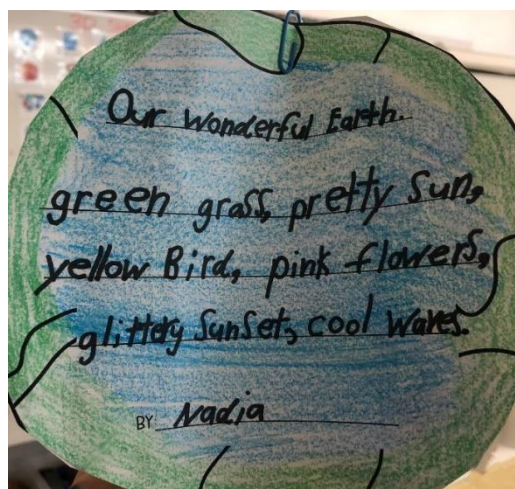 Our Wonderful Earth.
green grass, pretty sun,
yellow Bird, pink flowers,
glittery Sunset, cool Waves.
BY Nadia